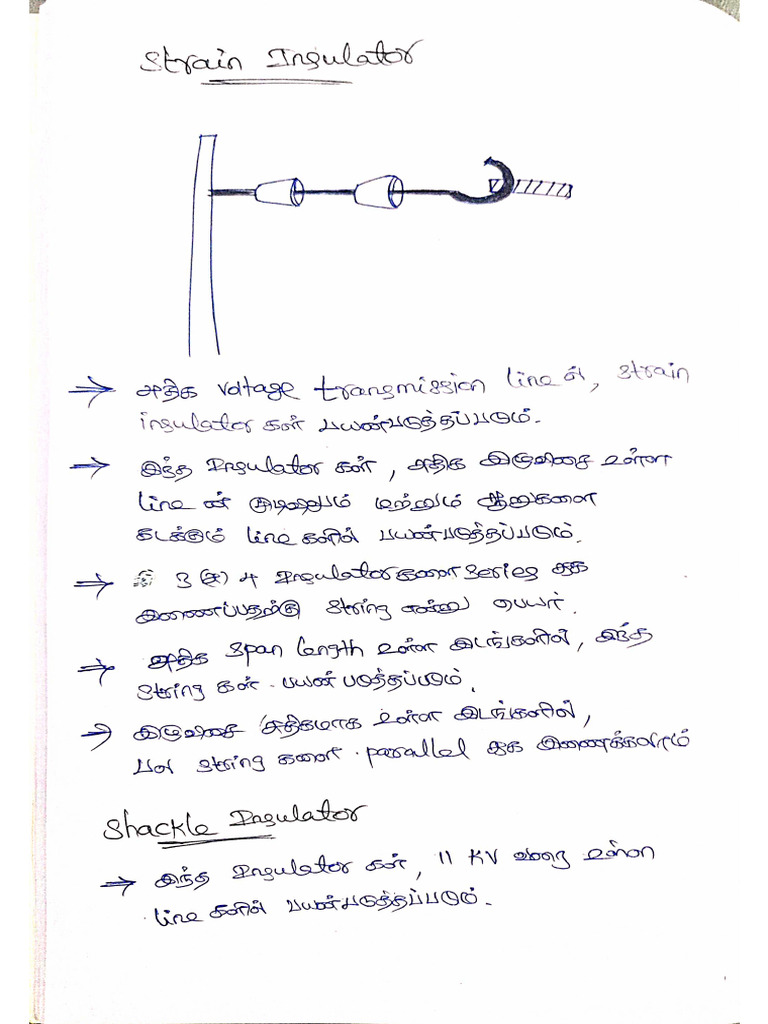 Strain Insulator
→ அதிக voltage transmission line ல், strain
insulator கள் பயன்படுத்தப்படும்.
→ இந்த Insulator கள், அதிக இழுவிசை உள்ள
line ன் முடிவிலும் மற்றும் ஆறுகளை
கடக்கும் line களில் பயன்படுத்தப்படும்.
→ 3 (அ) 4 Insulator களை Series ஆக
இணைப்பதற்கு String என்று பெயர்.
→ அதிக Span length உள்ள இடங்களில், இந்த
String கள் பயன்படுத்தப்படும்.
→ இழுவிசை அதிகமாக உள்ள இடங்களில்,
பல string களை parallel ஆக இணைக்கலாம்
Shackle Insulator
→ இந்த Insulator கள், 11 KV வரை உள்ள
line களில் பயன்படுத்தப்படும்.